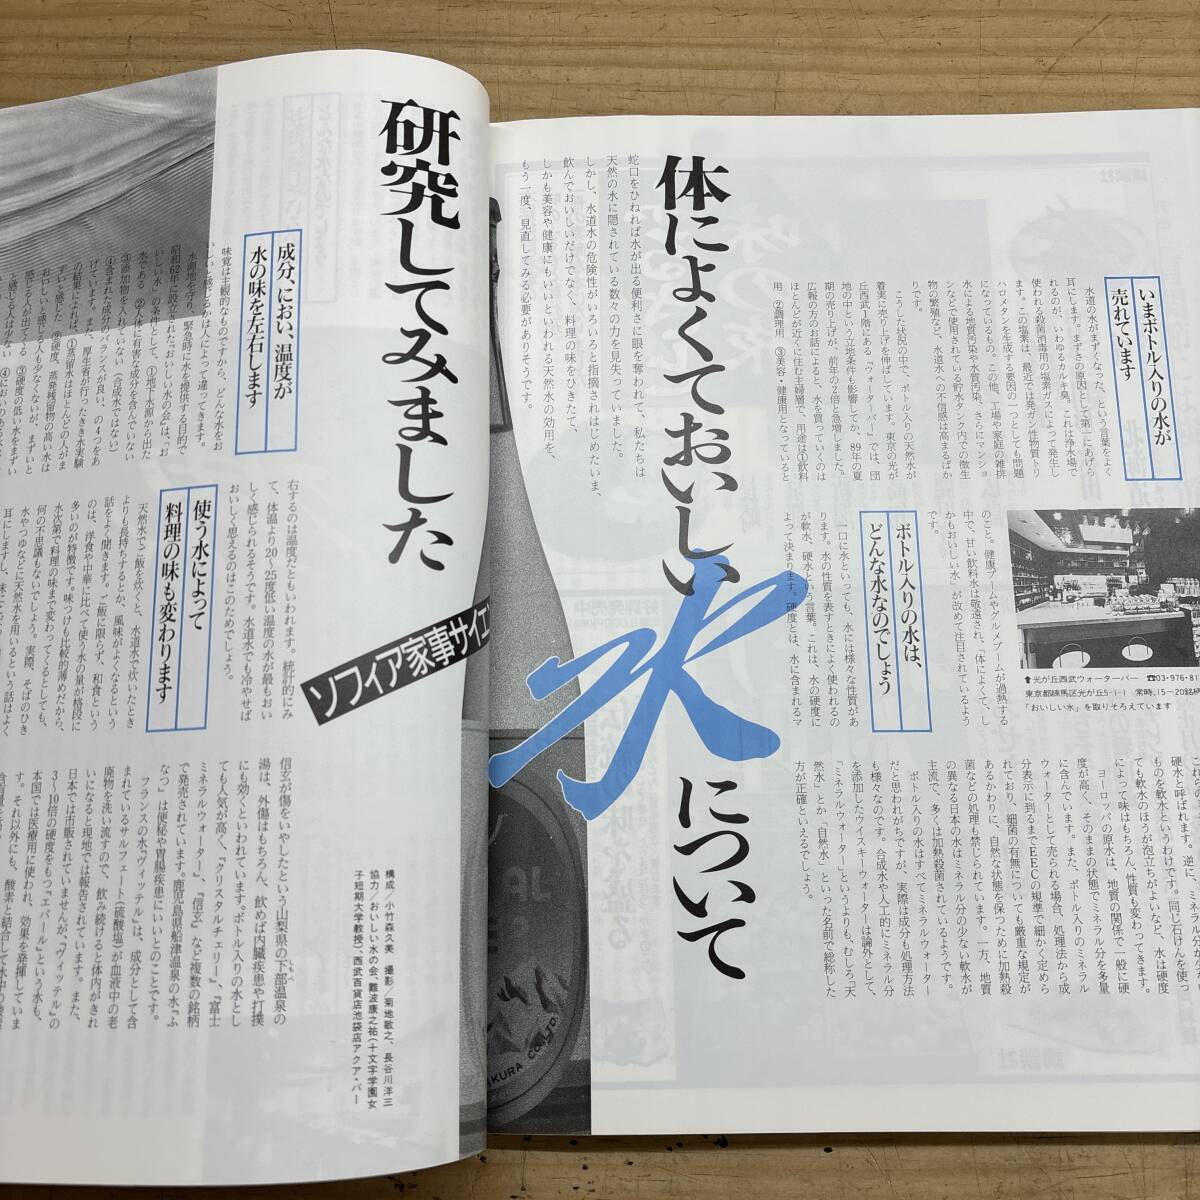 体によくておいしい水について
研究してみました
ソフィア家事サイエ
蛇口をひねれば水が出る便利さに眼を奪われて、私たちは
天然の水に隠されている数々の力を見失っていました。
しかし、水道水の危険性がいろいろと指摘されはじめたいま、
飲んでおいしいだけでなく、料理の味をひきたて、
しかも美容や健康にもいいといわれる天然水の効用を、
もう一度、見直してみる必要がありそうです。
いまボトル入りの水が
売れています
水道の水がまずくなった、という言葉をよく
耳にします。まずさの原因として第一にあげら
れるのが、いわゆるカルキ臭。これは浄水場で
使われる殺菌消毒用の塩素ガスによって発生し
ます。この塩素は、最近では発ガン性物質トリ
ハロメタンを生成する要因の一つとしても問題
になっているもの。この他、工場や家庭の雑排
水による地質汚染や水質汚染、さらにマンショ
ンなどで使用されている貯水タンク内での微生
物の繁殖など、水道水への不信感は高まるばか
りです。
こうした状況の中で、ボトル入りの天然水が
着実に売り上げを伸ばしています。東京の光が
丘西武1階にある「ウォーターバー」では、団
地の中という立地条件も影響してか、89年の夏
期の売り上げが、前年の2倍と急増しました。
広報の方のお話によると、水を買っていくのは
ほとんどが近くに住む主婦層で、用途は①飲料
用 ②調理用 ③美容・健康用となっていると
のこと。健康ブームやグルメブームが過熱する
中で、甘い飲料水は敬遠され、「体によくて、し
かもおいしい水」が改めて注目されているよう
です。
⬆光が丘西武ウォーターバー ☎03・976・81
東京都練馬区光が丘5-1-1 常時、15〜20銘柄
「おいしい水」を取りそろえています
ボトル入りの水は、
どんな水なのでしょう
一口に水といっても、水には様々な性質があ
ります。水の性質を表すときによく使われるの
が軟水、硬水という言葉。これは、水の硬度に
よって決まります。硬度とは、水に含まれるマ
硬水と呼ばれます。逆に、ミネラル
ものを軟水というわけです。同じ石けんを使っ
ても軟水のほうが泡立ちがよいなど、水は硬度
によって味はもちろん、性質も変わってきます。
ヨーロッパの原水は、地質の関係で一般に硬
度が高く、そのままの状態でミネラル分を多量
に含んでいます。また、ボトル入りのミネラル
ウォーターとして売られる場合、処理法から成
分表示に到るまでEECの規準で細かく定めら
れており、細菌の有無についても厳重な規定が
あるかわりに、自然な状態を保つために加熱殺
菌などの処理も禁じられています。一方、地質
の異なる日本の水はミネラル分の少ない軟水が
主流で、多くは加熱殺菌されているようです。
ボトル入りの水はすべてミネラルウォーター
だと思われがちですが、実際は成分も処理方法
も様々なのです。合成水や人工的にミネラル分
を添加したウイスキーウォーターは論外として、
「ミネラルウォーター」というよりも、むしろ「天
然水」とか「自然水」といった名前で総称した
方が正確といえるでしょう。
成分、におい、温度が
水の味を左右します
味覚は主観的なものですから、どんな水をお
いしいと感じるかは人によって違ってきます。
水源地を守り、緊急時に水を提供する目的で
昭和62年に設立された「おいしい水の会」は、お
いしい水の条件として、①地下水源から出た
水である ②人体に有害な成分を含んでいない
③添加物を入れていない（合成水ではない）
④含まれた成分のバランスが良い、の4つをあ
げています。また、厚生省が行った、きき水実験
の結果によれば、①蒸留水はほとんどの人がま
ずいと感じた ②硬度、蒸発残留物の高い水は
おいしいと感じる人も少なくないが、まずいと
感じる人が出てくる ③硬度の低い水をまずい
右するのは温度だともいわれます。統計的にみ
て、体温より20〜25度低い温度の水が最もおい
しく感じられるそうです。水道水でも冷やせば
おいしく思えるのはこのためでしょう。
使う水によって
料理の味も変わります
天然水でご飯を炊くと、水道水で炊いたとき
よりも長持ちするとか、風味がよくなるという
話をよく聞きます。ご飯に限らず、和食という
のは、洋食や中華に比べて使う水の量が格段に
多いのが特徴です。味つけも比較的薄めだから、
水次第で料理の味まで変わってくるとしても、
何の不思議もないでしょう。実際、そばのひき
水やつゆなどに天然水を用いるという話はよく
信玄が傷をいやしたという山梨県の下部温泉の
湯は、外傷はもちろん、飲めば内臓疾患や打撲
にも効くといわれています。ボトル入りの水とし
ても人気が高く、「クリスタルチェリー」、「富士
ミネラルウォーター」、「信玄」など複数の銘柄
で発売されています。鹿児島県船津温泉の水「ふ
なつ」は便秘や胃腸疾患にいいとのことです。
フランスの水「ヴィッテル」は、成分として含
まれているサルフェート（硫酸塩）が血液中の老
廃物を洗い流すので、飲み続けると体内がきれ
いになると現地では報告されています。また、
日本では市販されていませんが、「ヴィッテル」の
3〜10倍の硬度をもつ「エパール」という水も、
本国では医療用に使われ、効果を発揮していま
す。それ以外にも、酸素と結合して水中の酸素
構成／小竹森久美 撮影／菊地敏之、長谷川洋三
協力／おいしい水の会、難波康之祐（十文字学園女
子短期大学教授）、西武百貨店池袋店アクア・バー
KURA CO.,LTD.